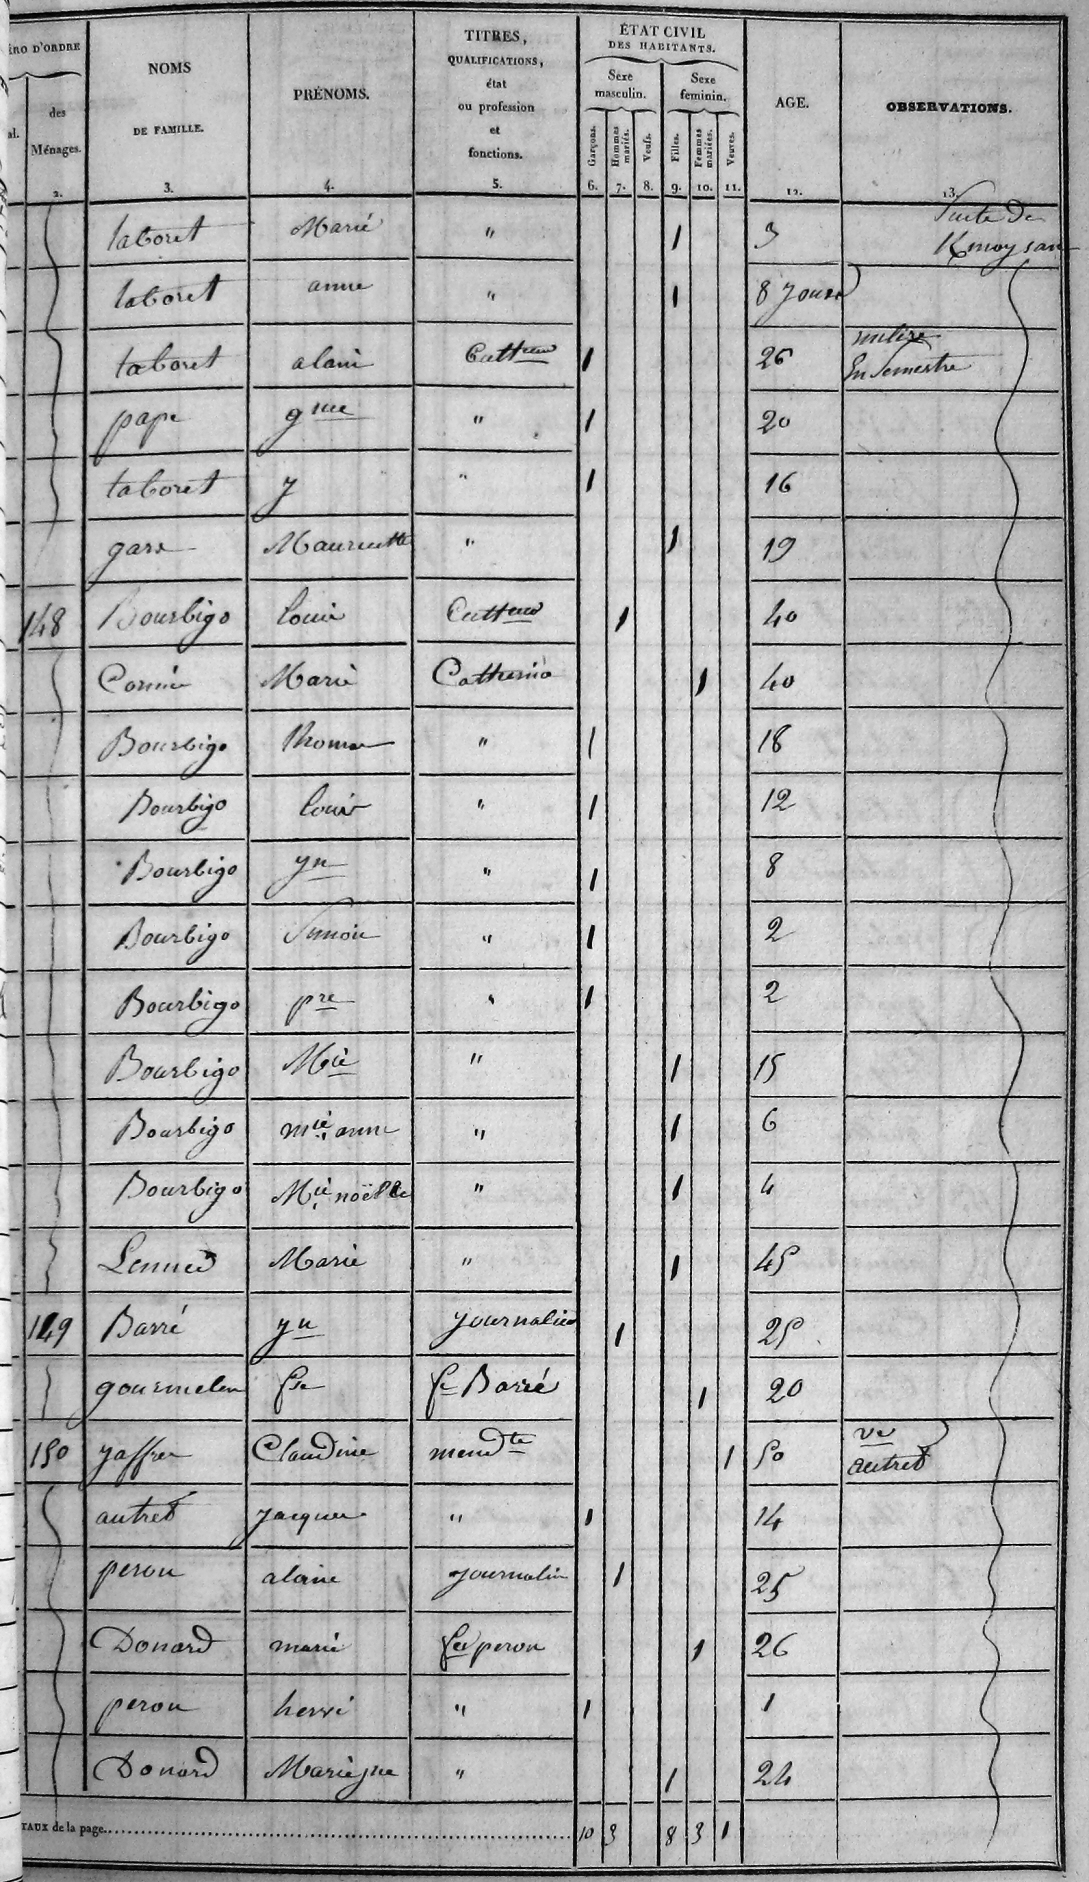 ÉRO D'ORDRE
al.
des
Ménages.
2.
NOMS
DE FAMILLE.
3.
PRÉNOMS.
4.
TITRES,
QUALIFICATIONS,
état
ou profession
et
fonctions.
5.
ÉTAT CIVIL
DES HABITANTS.
Sexe
masculin.
Sexe
feminin.
Garçons.
Hommes mariés.
Veufs.
Filles.
Femmes mariées.
Veuves.
6. 7. 8. 9. 10. 11.
AGE.
12.
OBSERVATIONS.
13.
Suite De
Kmoysan
taboret Marie " 1 3
taboret anne " 1 8 jours
taboret alain Cultteur 1 26 En Semestre
pape gme " 1 20
taboret y " 1 16
garx Mauricette " 1 19
148 Bourbigo louis Cultteur 1 40
Cornic Marie 1 40
Bourbigo thomas " 1 18
Bourbigo louis " 1 12
Bourbigo yn " 1 8
Bourbigo Simon " 1 2
Bourbigo pre " 1 2
Bourbigo Mie " 1 15
Bourbigo mie anne " 1 6
Bourbigo Mie noëlle " 1 4
Marie " 1 45
149 Barré yn journalier 1 25
gourmelen fse fe Barré 1 20
150 jaffre Claudine mendte 1 50 ve autret
autret jacques " 1 14
peron alain journalier 1 25
Donard marie fe peron 1 26
peron hervé " 1 1
Donard Marie jne " 1 24
TAUX de la page 10 3 8 3 1